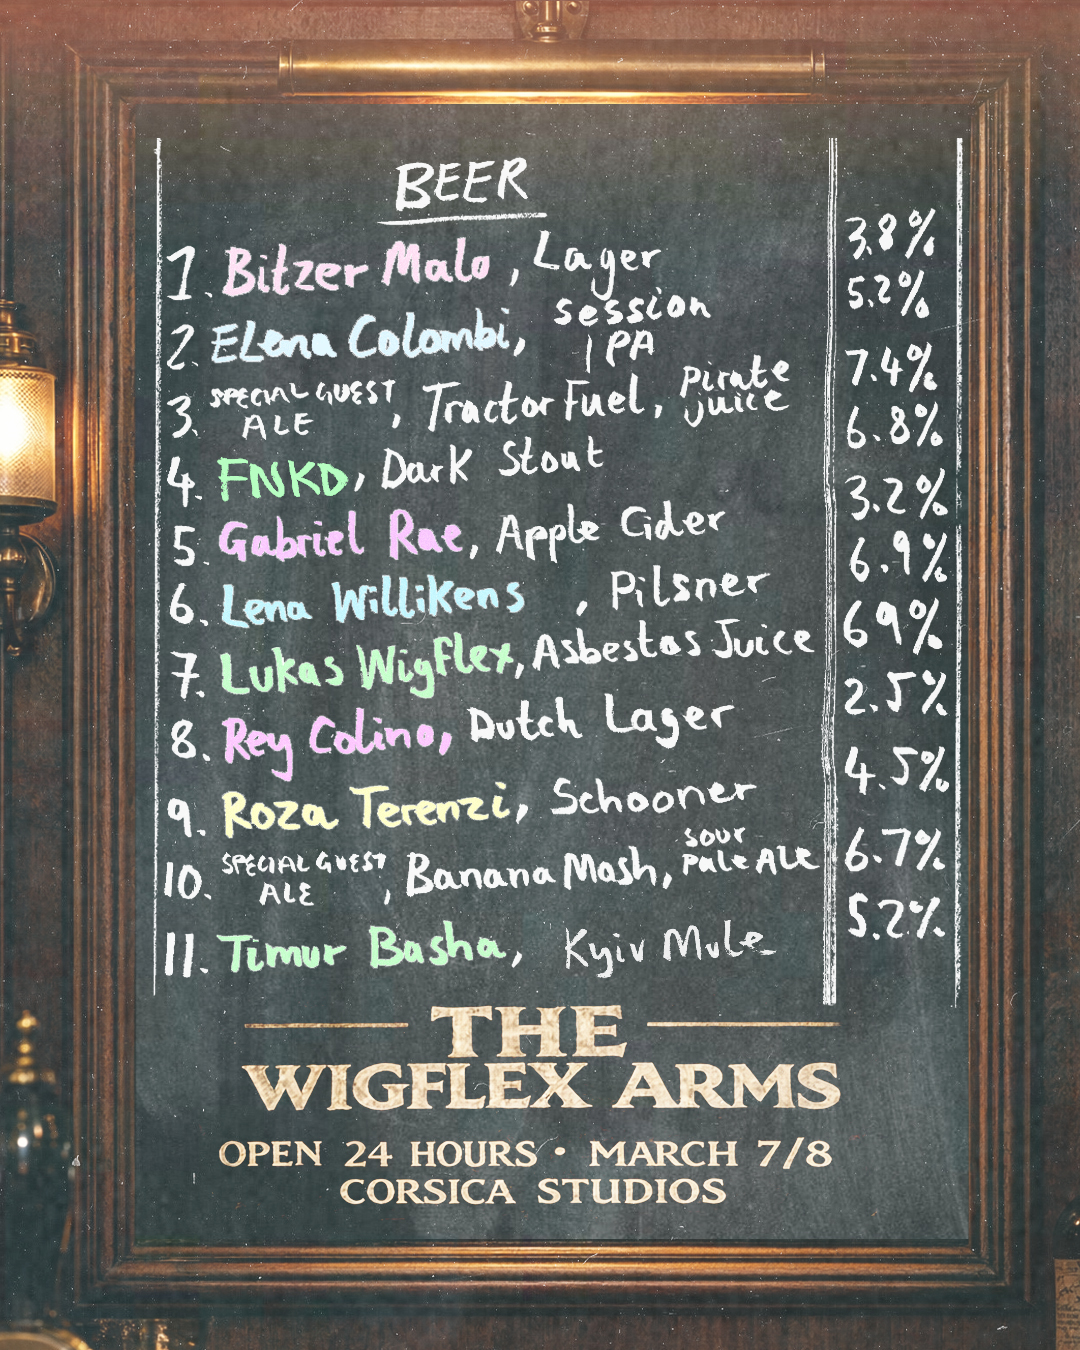 BEER
1. Bitzer Malo, Lager 3.8%
2. ELena Colombi, session IPA 5.2%
3. SPECIAL GUEST ALE, Tractor Fuel, Pirate juice 7.4%
4. FNKD, Dark Stout 6.8%
5. Gabriel Rae, Apple Cider 3.2%
6. Lena Willikens, Pilsner 6.9%
7. Lukas Wigflex, Asbestos Juice 69%
8. Rey Colino, Dutch Lager 2.5%
9. Roza Terenzi, Schooner 4.5%
10. SPECIAL GUEST ALE, Banana Mash, sour Pale ALe 6.7%
11. Timur Basha, Kyiv Mule 5.2%
THE
WIGFLEX ARMS
OPEN 24 HOURS • MARCH 7/8
CORSICA STUDIOS